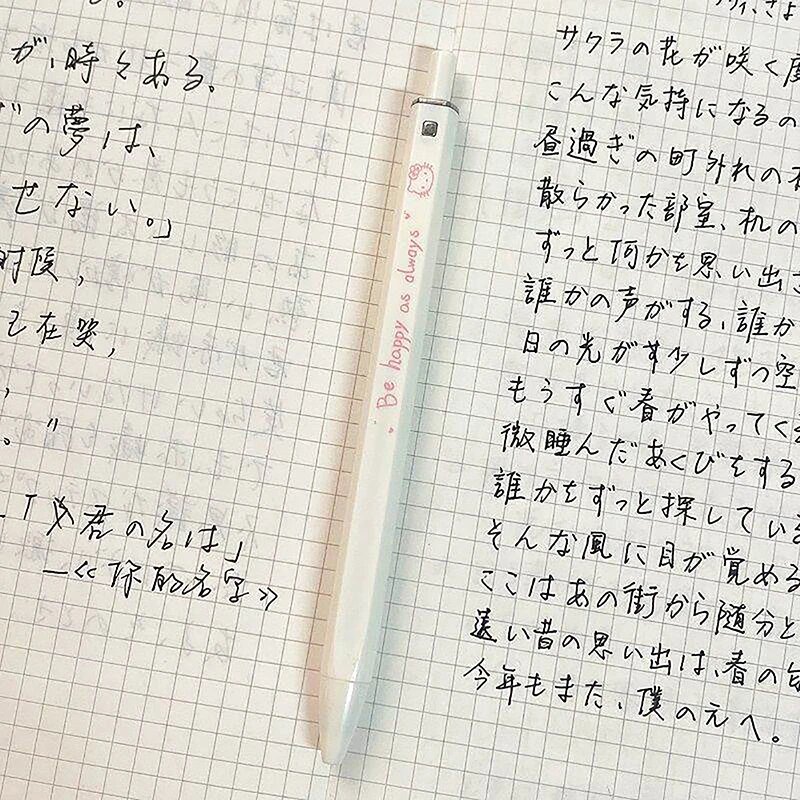 が、時々ある。
の夢は、
せない。」
时候，
己在哭，
。"
「君の名は」
—《你的名字》
Be happy as always
サクラの花が咲く度
こんな気持になるの
昼過ぎの町外れの
散らかった部室、机の
ずっと何かを思い出さ
誰かの声がする、誰か
日の光が少しずつ空
もうすぐ春がやってく
微睡んだあくびをする
誰かをずっと探している
そんな風に目が覚める
ここはあの街から随分と
遠い昔の思い出は、春の
今年もまた、僕の元へ。